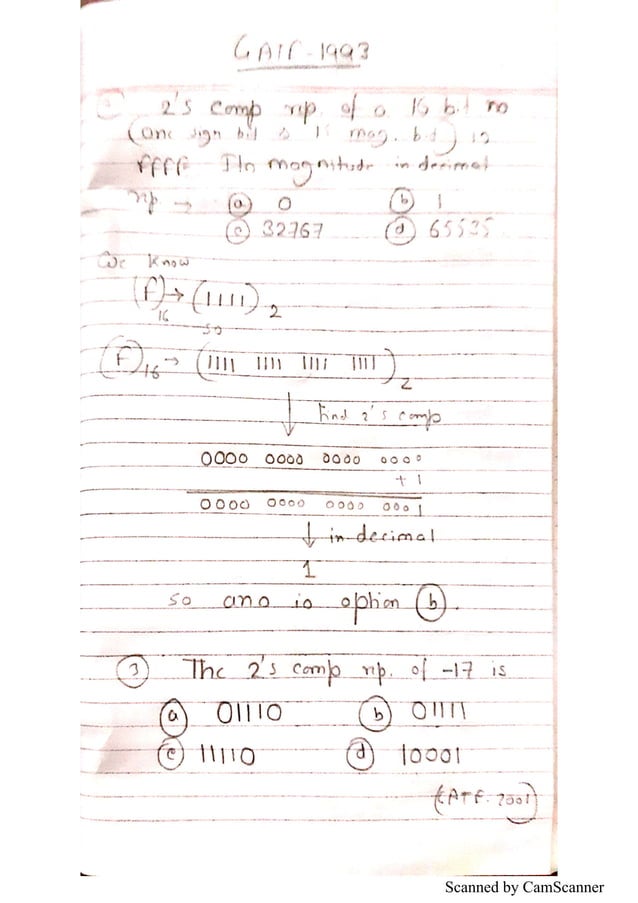 GATE-1993
② 2's comp rep. of a 16 bit no
(one sign bit & 15 mag. bit) is
FFFF Its magnitude in decimal
rep. → ⓐ 0 ⓑ 1
ⓒ 32767 ⓓ 65535
We know
(F)₁₆ → (1111)₂
so
(F)₁₆ → (1111 1111 1111 1111)₂
↓ find 2's comp
0000 0000 0000 0000
+ 1
0000 0000 0000 0001
↓ in decimal
1
so ans is option ⓑ.
③ The 2's comp rep. of -17 is
ⓐ 01110 ⓑ 01111
ⓒ 11110 ⓓ 10001
(GATE-2001)
Scanned by CamScanner